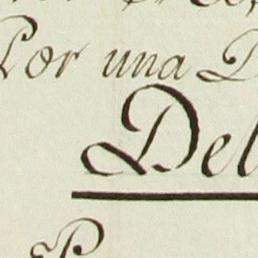 Por una D
Del
P